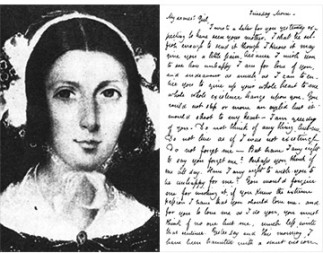 Tuesday Morn.
My dearest Girl,
I wrote a letter for you yesterday ex-
pecting to have seen your mother. I shall be sel-
fish enough to send it though I know it may
give you a little pain, because I wish you
to see how unhappy I am for love of you,
and endeavour as much as I can to en-
tice you to give up your whole heart to me
whole whole existence hangs upon you. You
could not step or move an eyelid but it
would shoot to my heart - I am greedy
of you. Do not think of any thing but me.
Do not live as if I was not existing.
Do not forget me - But have I any right
to say you forget me? Perhaps you think of
me all day. Have I any right to wish you to
be unhappy for me? You would forgive
me for wishing it, if you knew the extreme
passion I have that you should love me - and
for you to love me as I do you, you must
think of no one but me, much less write
that sentence. Yesterday and this morning I
have been haunted with a sweet vision